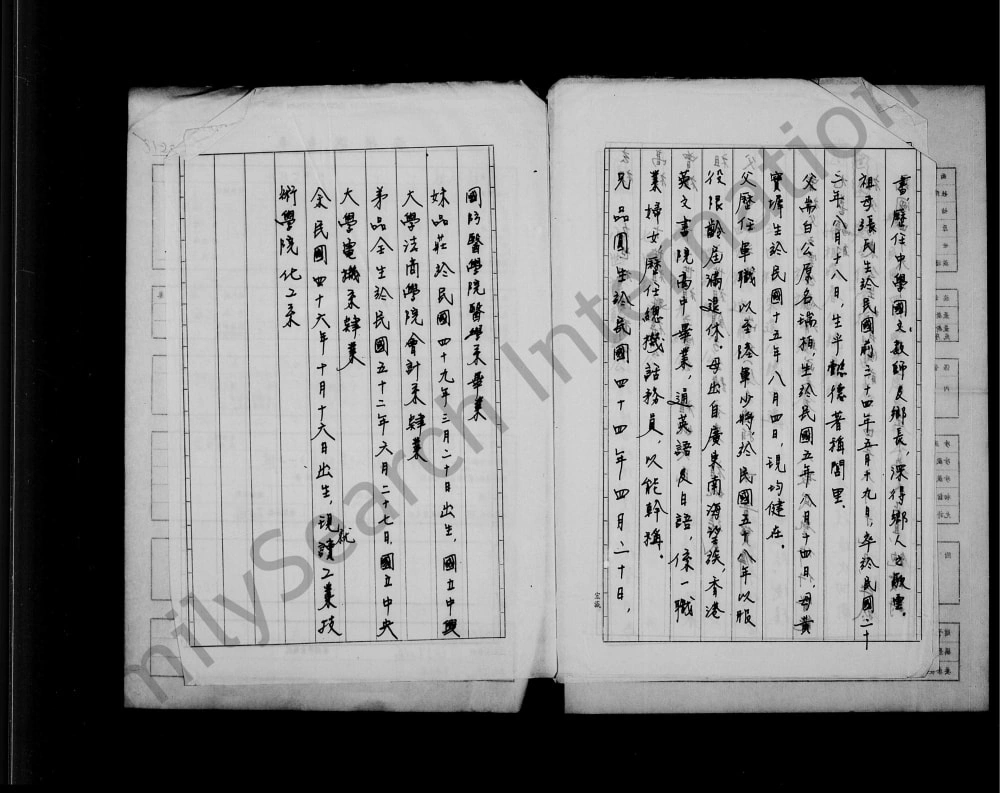 書歷任中學國文教師及鄉長，深得鄉人之敬重。
祖母張氏生於民國前二十四年五月十九日，卒於民國二十
二年八月十八日，生平懿德著稱閭里。
父崙白公原名瑞栢，生於民國五年八月十四日，母黃
寶墀生於民國十五年八月四日，現均健在。
父歷任軍職以至陸軍少將於民國五十八年以服
役限齡屆滿退休。母出自廣東南海望族，香港
英文書院高中畢業，通英語及日語，係一職
業婦女，歷任總機話務員，以能幹稱。
兄品圓生於民國四十四年四月二十日，
國防醫學院醫學系畢業
妹品莊於民國四十九年三月二十日出生，國立中興
大學法商學院會計系肄業
弟品全生於民國五十二年六月二十七日，國立中央
大學電機系肄業
余民國四十六年十月十六日出生，現就讀工業技
術學院化工系
FamilySearch International